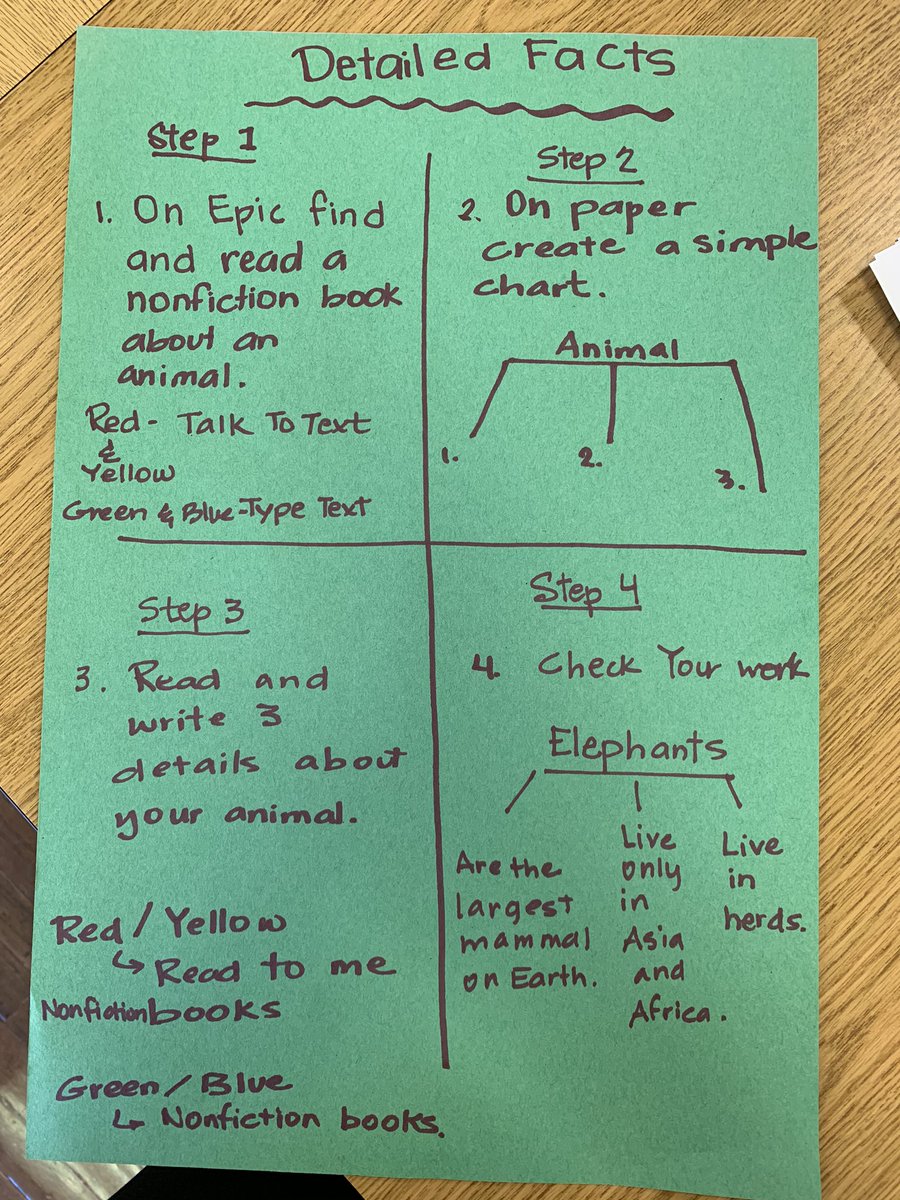 Detailed Facts
Step 1
1. On Epic find
and read a
nonfiction book
about an
animal.
Red - Talk To Text
&
Yellow
Green & Blue-Type Text
Step 2
2. On paper
create a simple
chart.
Animal
1.
2.
3.
Step 3
3. Read and
write 3
details about
your animal.
Red / Yellow
↳ Read to me
Nonfiction books
Green / Blue
↳ Nonfiction books.
Step 4
4. Check Your work
Elephants
Are the
largest
mammal
on Earth.
Live
only
in
Asia
and
Africa.
Live
in
herds.